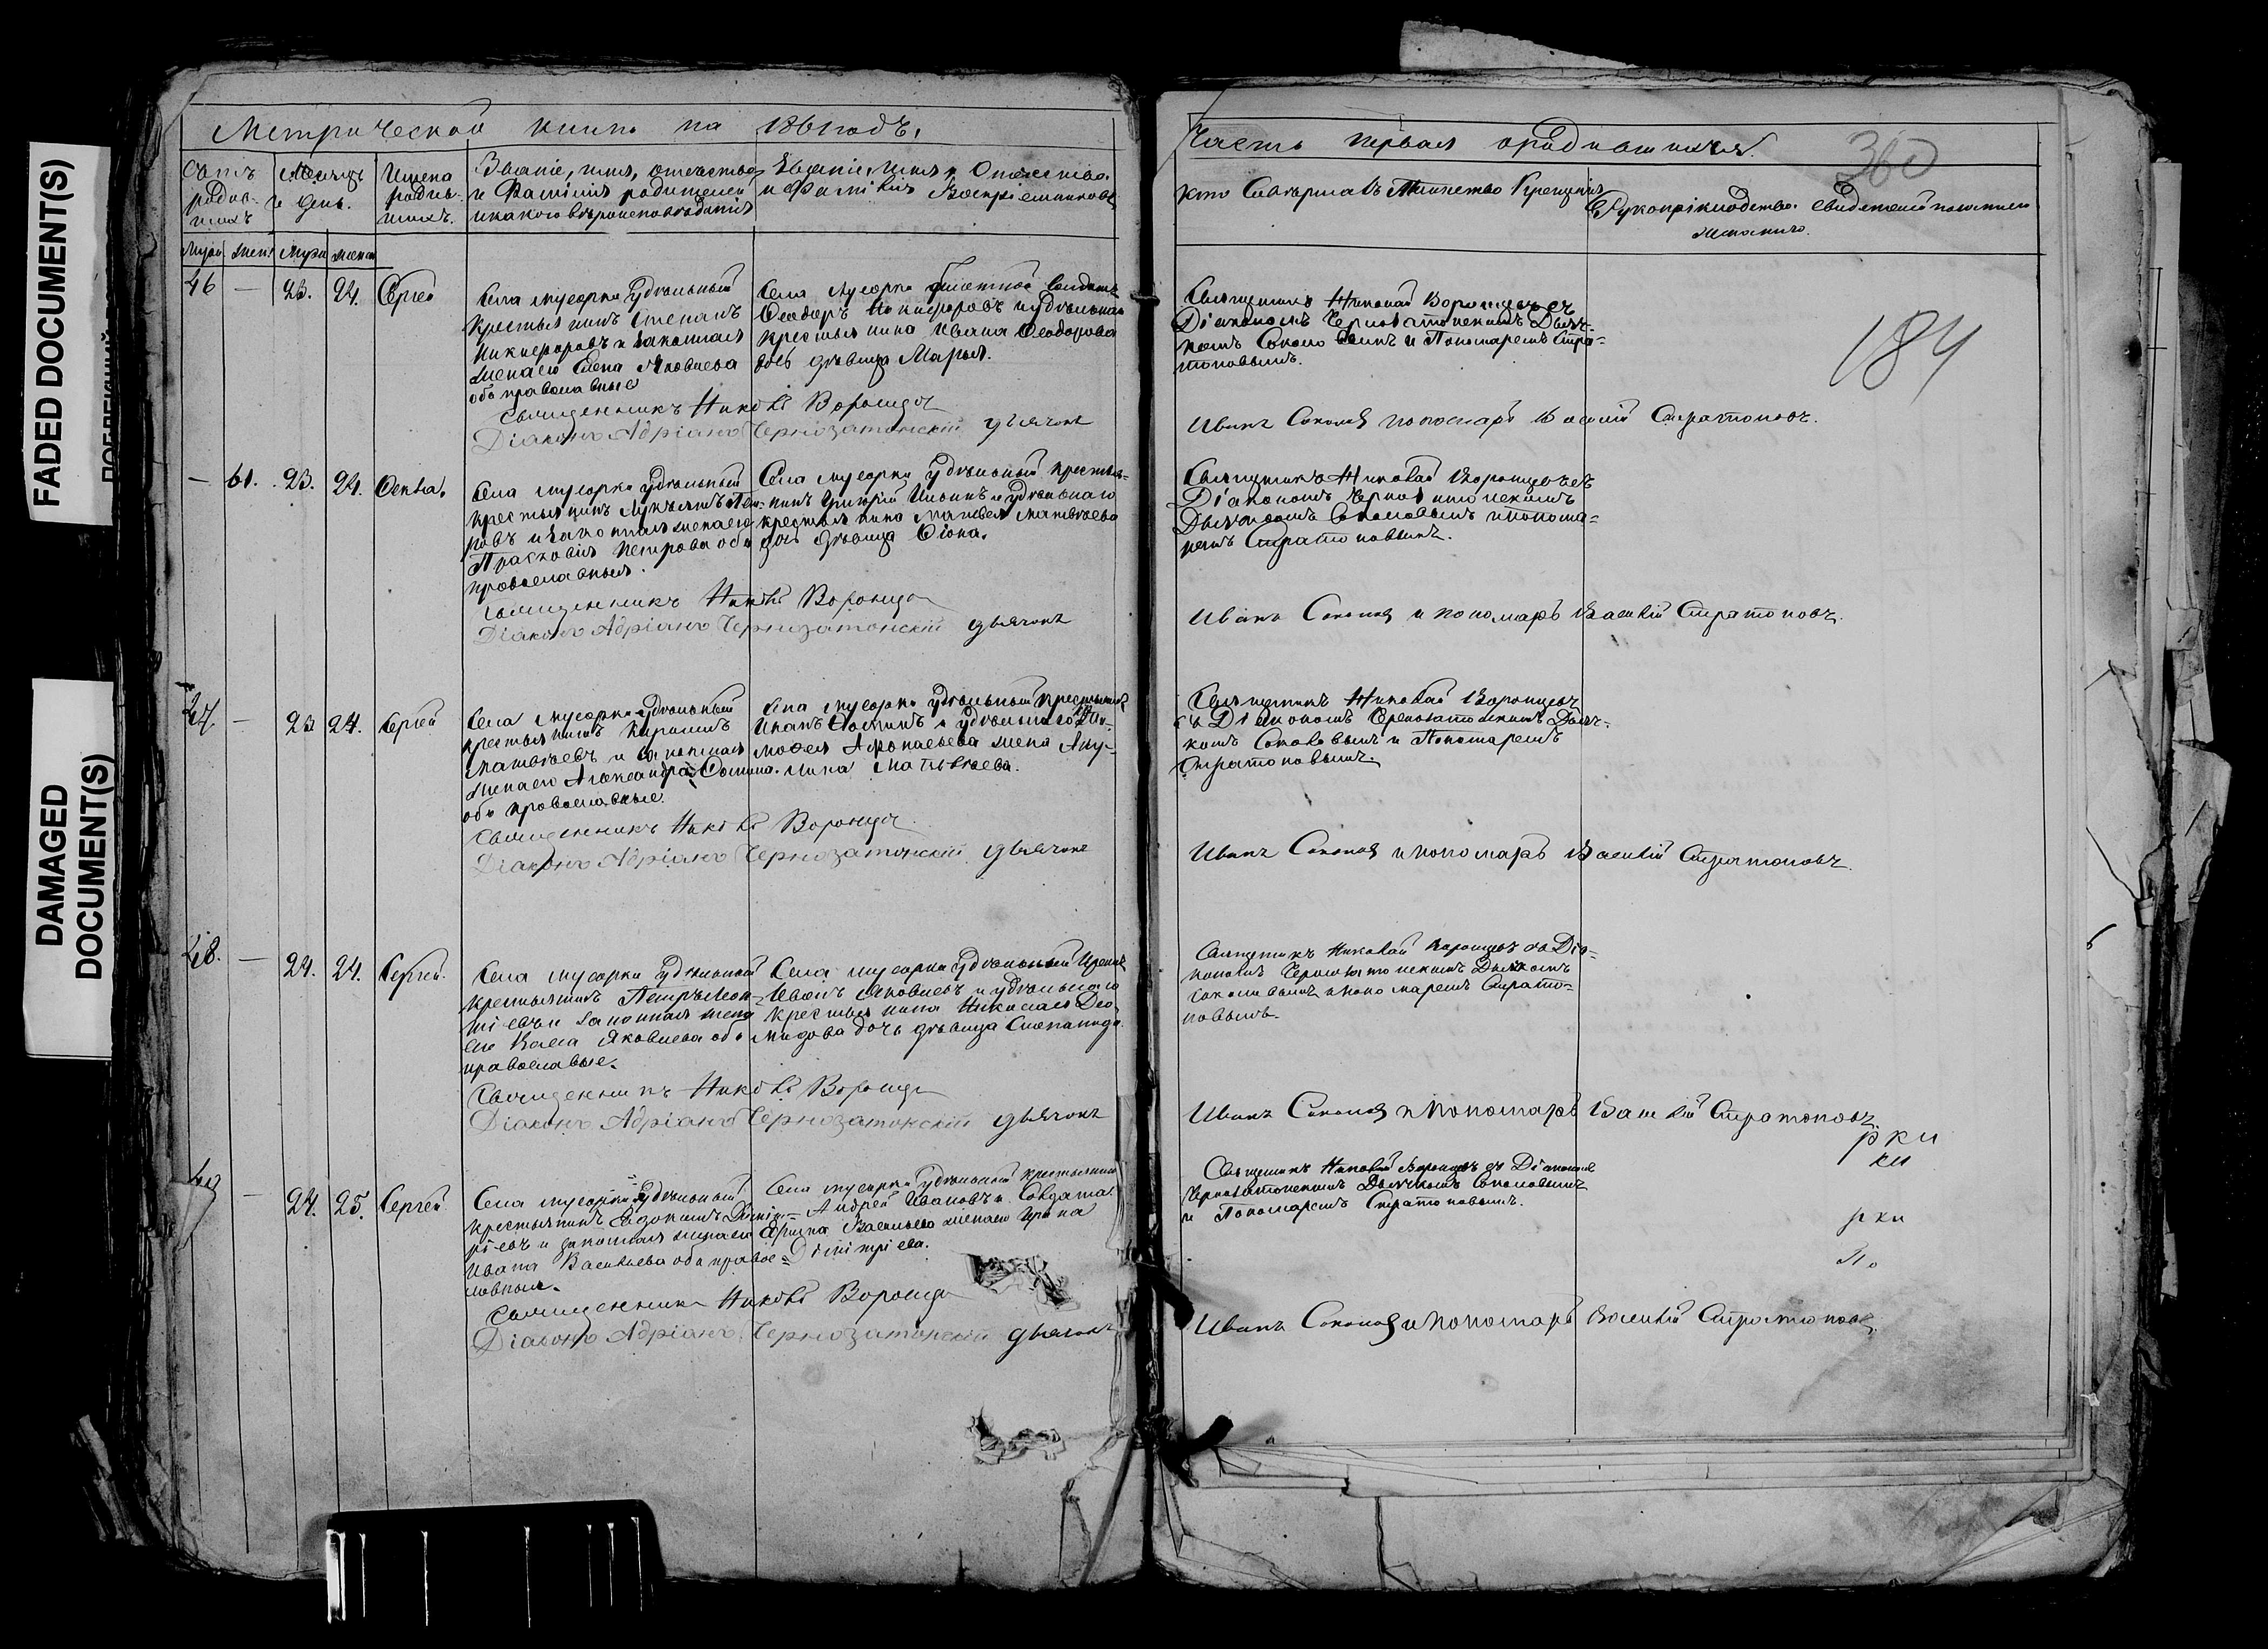 FADED DOCUMENT(S)
DAMAGED DOCUMENT(S)
Метрической книги на 186 годъ,
Счетъ родив- шихъ
Месяцъ и день.
Имена родив- шихъ.
Званіе, имя, отчество
и Фамилія родителей
и какого вѣроисповѣданія
Званіе, имя, Отчество
и Фамилія Воспріемниковъ
Муж. жен. Муж. женс.
46 — 23. 24. Сергей
Села Мусорки удѣльный
крестьянинъ Степанъ
Никифоровъ и законная
жена его Елена Яковлева
оба православные
Села Мусорки билетной солдатъ
Ѳеодоръ Никифоровъ и удѣльнаго
крестьянина Ивана Ѳеодорова
дочь дѣвица Марья.
Священникъ Николай Воронцов
Діаконъ Адріанъ Чернозатонскій дьячокъ
— 61. 23. 24. Ѳекла.
Села Мусорки удѣльный
крестьянинъ Лукьянъ
ровъ и законная жена его
Прасковія Петрова оба
православныя.
Села Мусорки удѣльный крестья-
нинъ Григорій Ильинъ и удѣльнаго
крестьянина Матвея Матвѣева
дочь дѣвица
Священникъ Николай Воронцов
Діаконъ Адріанъ Чернозатонскій дьячокъ
47. — 23 24. Сергей
Села Мусорки удѣльный
крестьянинъ
Матвѣевъ и законная
жена его Александра
оба православные.
Села Мусорки удѣльный крестьянинъ
Иванъ и удѣльнаго
Афонасьева жена Аку-
лина Матвѣева.
Священникъ Николай Воронцов
Діаконъ Адріанъ Чернозатонскій дьячокъ
48. — 24. 24. Сергей.
Села Мусорки удѣльный
крестьянинъ Петръ Леон-
тіевъ и законная жена
его Васа Яковлева оба
православные.
Села Мусорки удѣльный
Яковлевъ и удѣльнаго
крестьянина Николая Део-
мидова дочь дѣвица Степанида.
Священникъ Николай Воронцов
Діаконъ Адріанъ Чернозатонскій дьячокъ
49 — 24. 25. Сергей.
Села Мусорки удѣльный
крестьянинъ Евдокимъ Димит-
ріевъ и законная жена его
Васильева оба право-
славныя.
Села Мусорки удѣльный крестьянинъ
Андрей Ивановъ и Солдата
Васильева жена его Ирина
Димитріева.
Священникъ Николай Воронцов
Діаконъ Адріанъ Чернозатонскій дьячокъ
Часть первая о родившихся.
360
Кто Совершалъ Таинство Крещенія
Рукоприкладство Свидетелей по
желанію.
184
Священникъ Николай Воронцовъ съ
Діакономъ Чернозатонскимъ Дьяч-
комъ Соколовымъ и Пономаремъ Стра-
тоновымъ.
Иванъ Соколов пономарь Василій Стратоновъ.
Священникъ Николай Воронцовъ съ
Діакономъ Чернозатонскимъ
Дьячкомъ Соколовымъ и понома-
ремъ Стратоновымъ.
Иванъ Соколов и пономарь Василій Стратоновъ.
Священникъ Николай Воронцовъ
съ Діакономъ Чернозатонскимъ Дьяч-
комъ Соколовымъ и Пономаремъ
Стратоновымъ.
Иванъ Соколов и пономарь Василій Стратоновъ.
Священникъ Николай Воронцовъ съ Діа-
кономъ Чернозатонскимъ Дьячкомъ
Соколовымъ и пономаремъ Страто-
новымъ.
Иванъ Соколов и пономарь Василій Стратоновъ.
рки
ки
Священникъ Николай Воронцовъ съ Діакономъ
Чернозатонскимъ Дьячкомъ Соколовымъ
и Пономаремъ Стратоновымъ.
рки
По
Иванъ Соколов и пономарь Василій Стратоновъ.